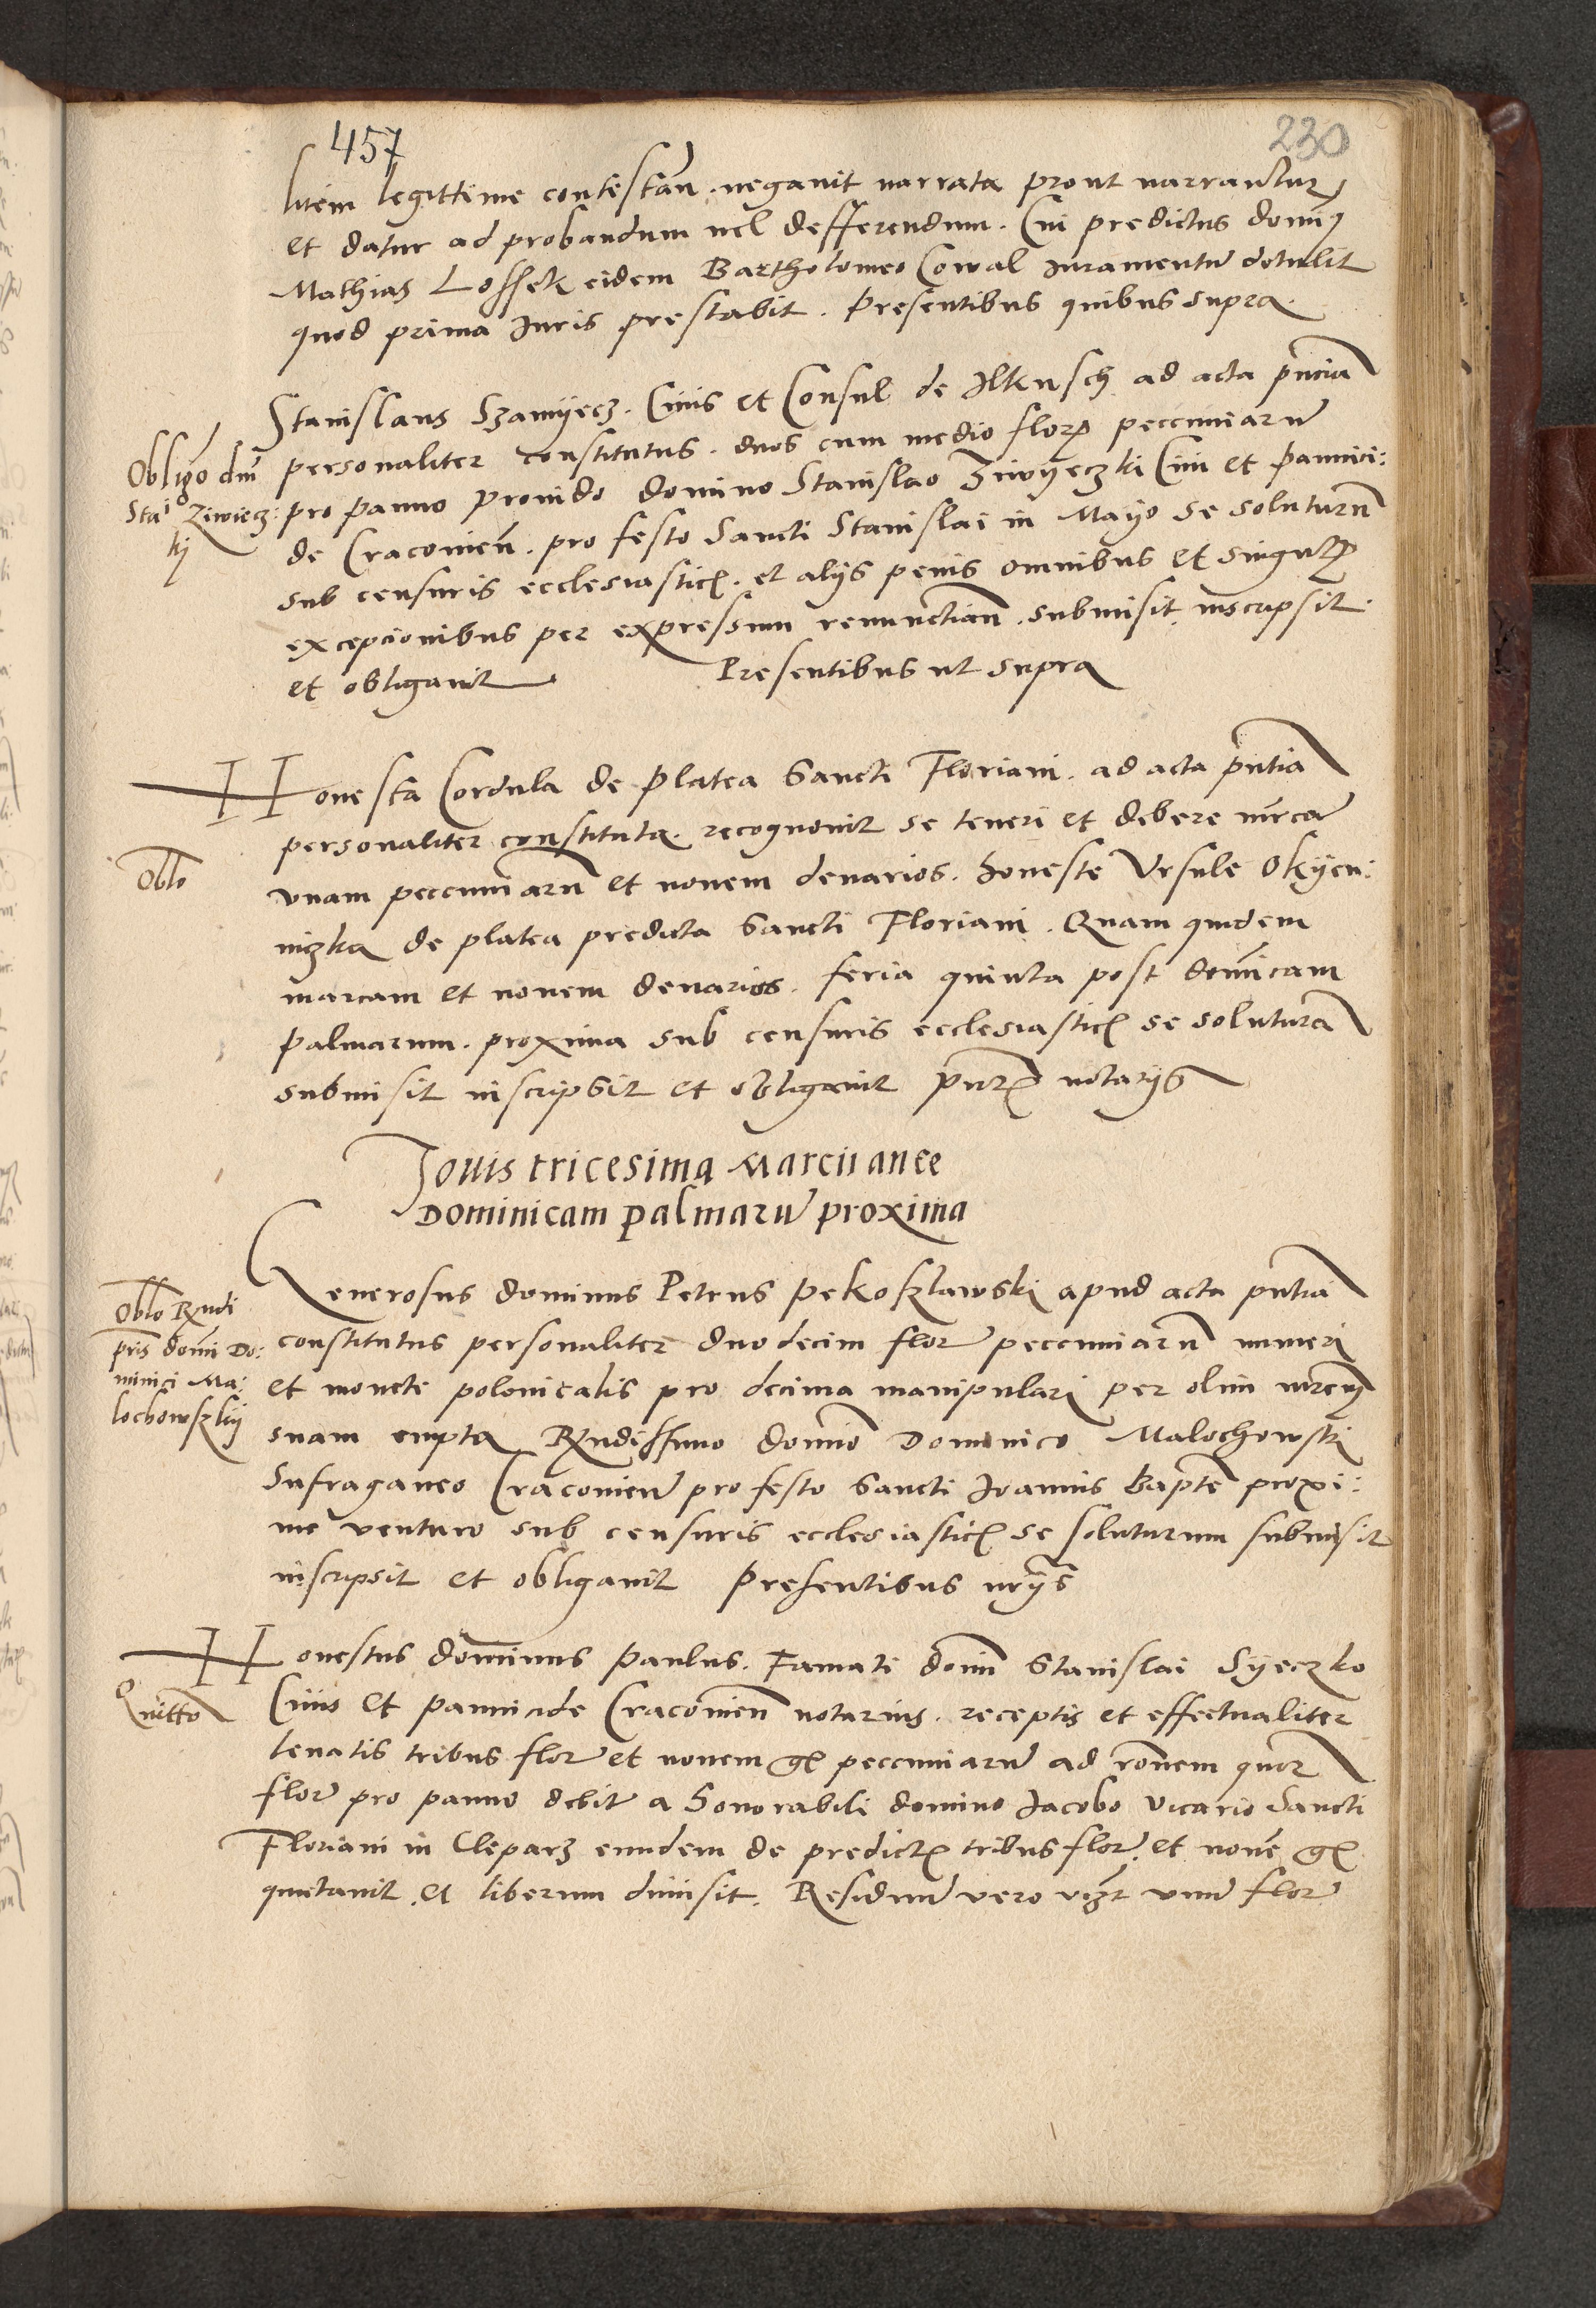 457
230
litem legittime contestan̄. negauit narrata prout narrantur,
et datur ad probandum uel defferendum. Cui predictus domꝰ
Mathias Lossek eidem Bartholomeo Cowal Iuramentū detulit
quod prima Iuris prestabit. Presentibus quibus supra.
Stanislaus Szamyecz. Ciuis et Consul de Ilkusch ad acta pn̄cia
Obligo dn̄i
Stai Ziwiecz:
kj
personaliter constitutus. duos cum medio flor pecuniarū
pro panno prouido domino Stanislao Ziwyeczki Ciui et pannici:
de Cracouien̄. pro festo Sancti Stanislai in Mayo se soluturū
sub censuris ecclesiastic. et alijs penis omnibus et singul
excepcionibus per expressum renunctian̄. submisit inscripsit
et obligauit
Presentibus ut supra
Honesta Cordula de Platea Sancti Floriani. ad acta pn̄tia
Oblo
personaliter constituta. recognouit se teneri et debere mrcā
vnam peccuniarū et nouem denarios. honeste Vrsule Okyen:
niczka de platea predicta Sancti Floriani. Quam quidem
marcam et nouem denarios. feria quinta post domīcam
palmarum. proxima sub censuris ecclesiastic se soluturā
submisit inscripsit et obligauit pn̄t notarijs
Iouis tricesima Marcii ante
Dominicam palmarū proxima
Generosus dominus Petrus Pekoszlawski apud acta pn̄tia
Oblo Rn̄di
pris domi Do:
minici Ma:
lochowszkij
constitutus personaliter duodecim flor peccuniarū numeri
et monete polonicalis pro decima manipulari per olim mrem
suam empta Rn̄dissimo domīo Dominico Malochowski
Sufraganeo Cracouien̄ pro festo Sancti Ioannis Bapte proxi:
me venturo sub censuris ecclesiastic se soluturum submisit
inscripsit et obligauit Presentibus nrijs
Honestus dominus Paulus. Famati domī Stanislai Syeczko
Quitto
Ciuis et pannicide Cracouien̄ notarius. receptis et effectualiter
leuatis tribus flor et nouem gr peccuniarū ad ronem quor
flor pro panno debit a Honorabili domino Iacobo vicario Sancti
Floriani in Cleparz eundem de predict tribus flor et nouē gr
quietauit et liberum dimisit. Residuū vero vizt vnū flor